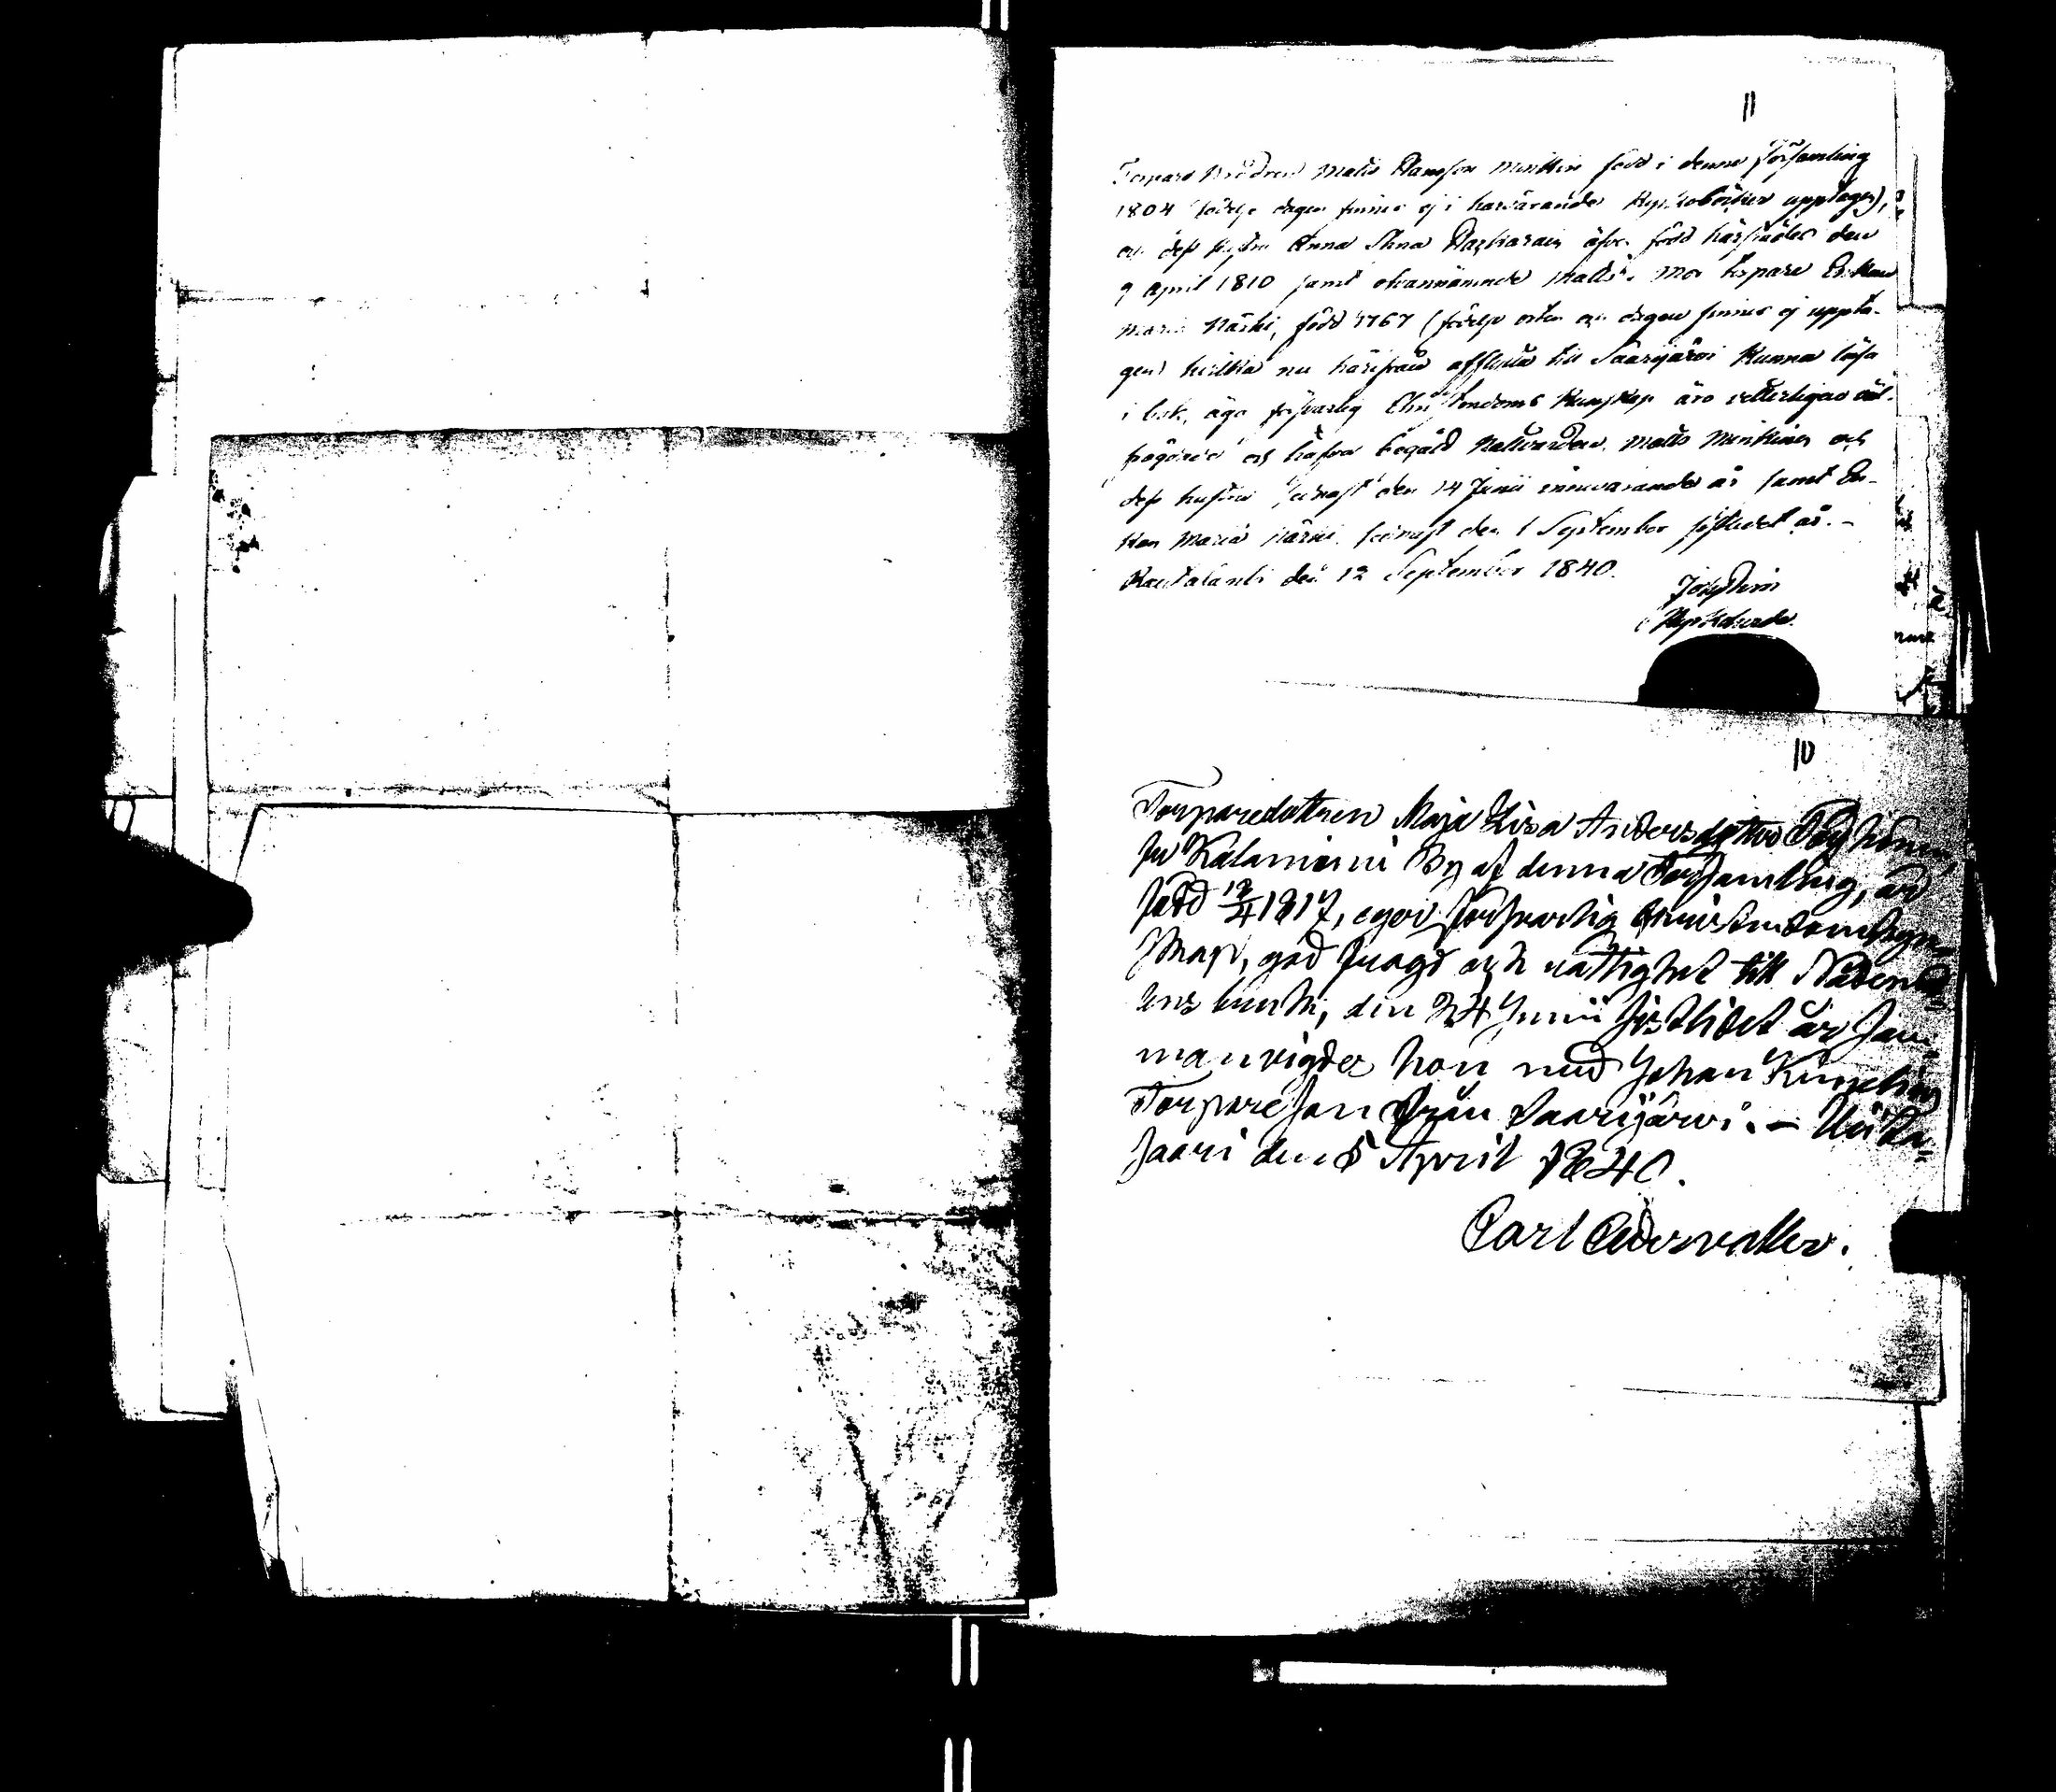 11
Torpare Brodren Matts Hansson Minkkin född i denna Församling
1804 (födelse dagen finnes ej i härvarande Kyrkoböcker upptagen),
och dess hustru Anna Stina äfven född härstädes den
9 April 1810 samt ofvannämnde Matts's Mor torpare Enkan
Maria Närhi, född 1767 (födelse orten och dagen finnes ej uppta-
gen) hvilka nu härifrån afflytta till Saarijärvi Kunna läsa
i bok, äga försvarlig Christendoms Kunskap äro veterligen väl-
frägdade och hafva begådt Nattvarden, Matts Minkinen och
dess hustru sednast den 14 Junii innevarande år samt En-
kan Maria Närhi sednast den 1 September sistledet år. -
Rautalambi den 12 September 1840.
Kyrkoherde.
10
Torparedottren Maja Lisa Andersdotter
fr Kalaniemi By af denna Församling, är
född 12/4 1817, eger försvarlig Christendomskun-
skap, god frägd och rättighet till Nådenes
ens bruk, den 24 Junii sistlidet år sam-
manvigdes hon med Johan Kinnelin
Torpareson från Saarijärvi. - Wiita-
saari den 5 April 1840.
Carl Cederwaller.